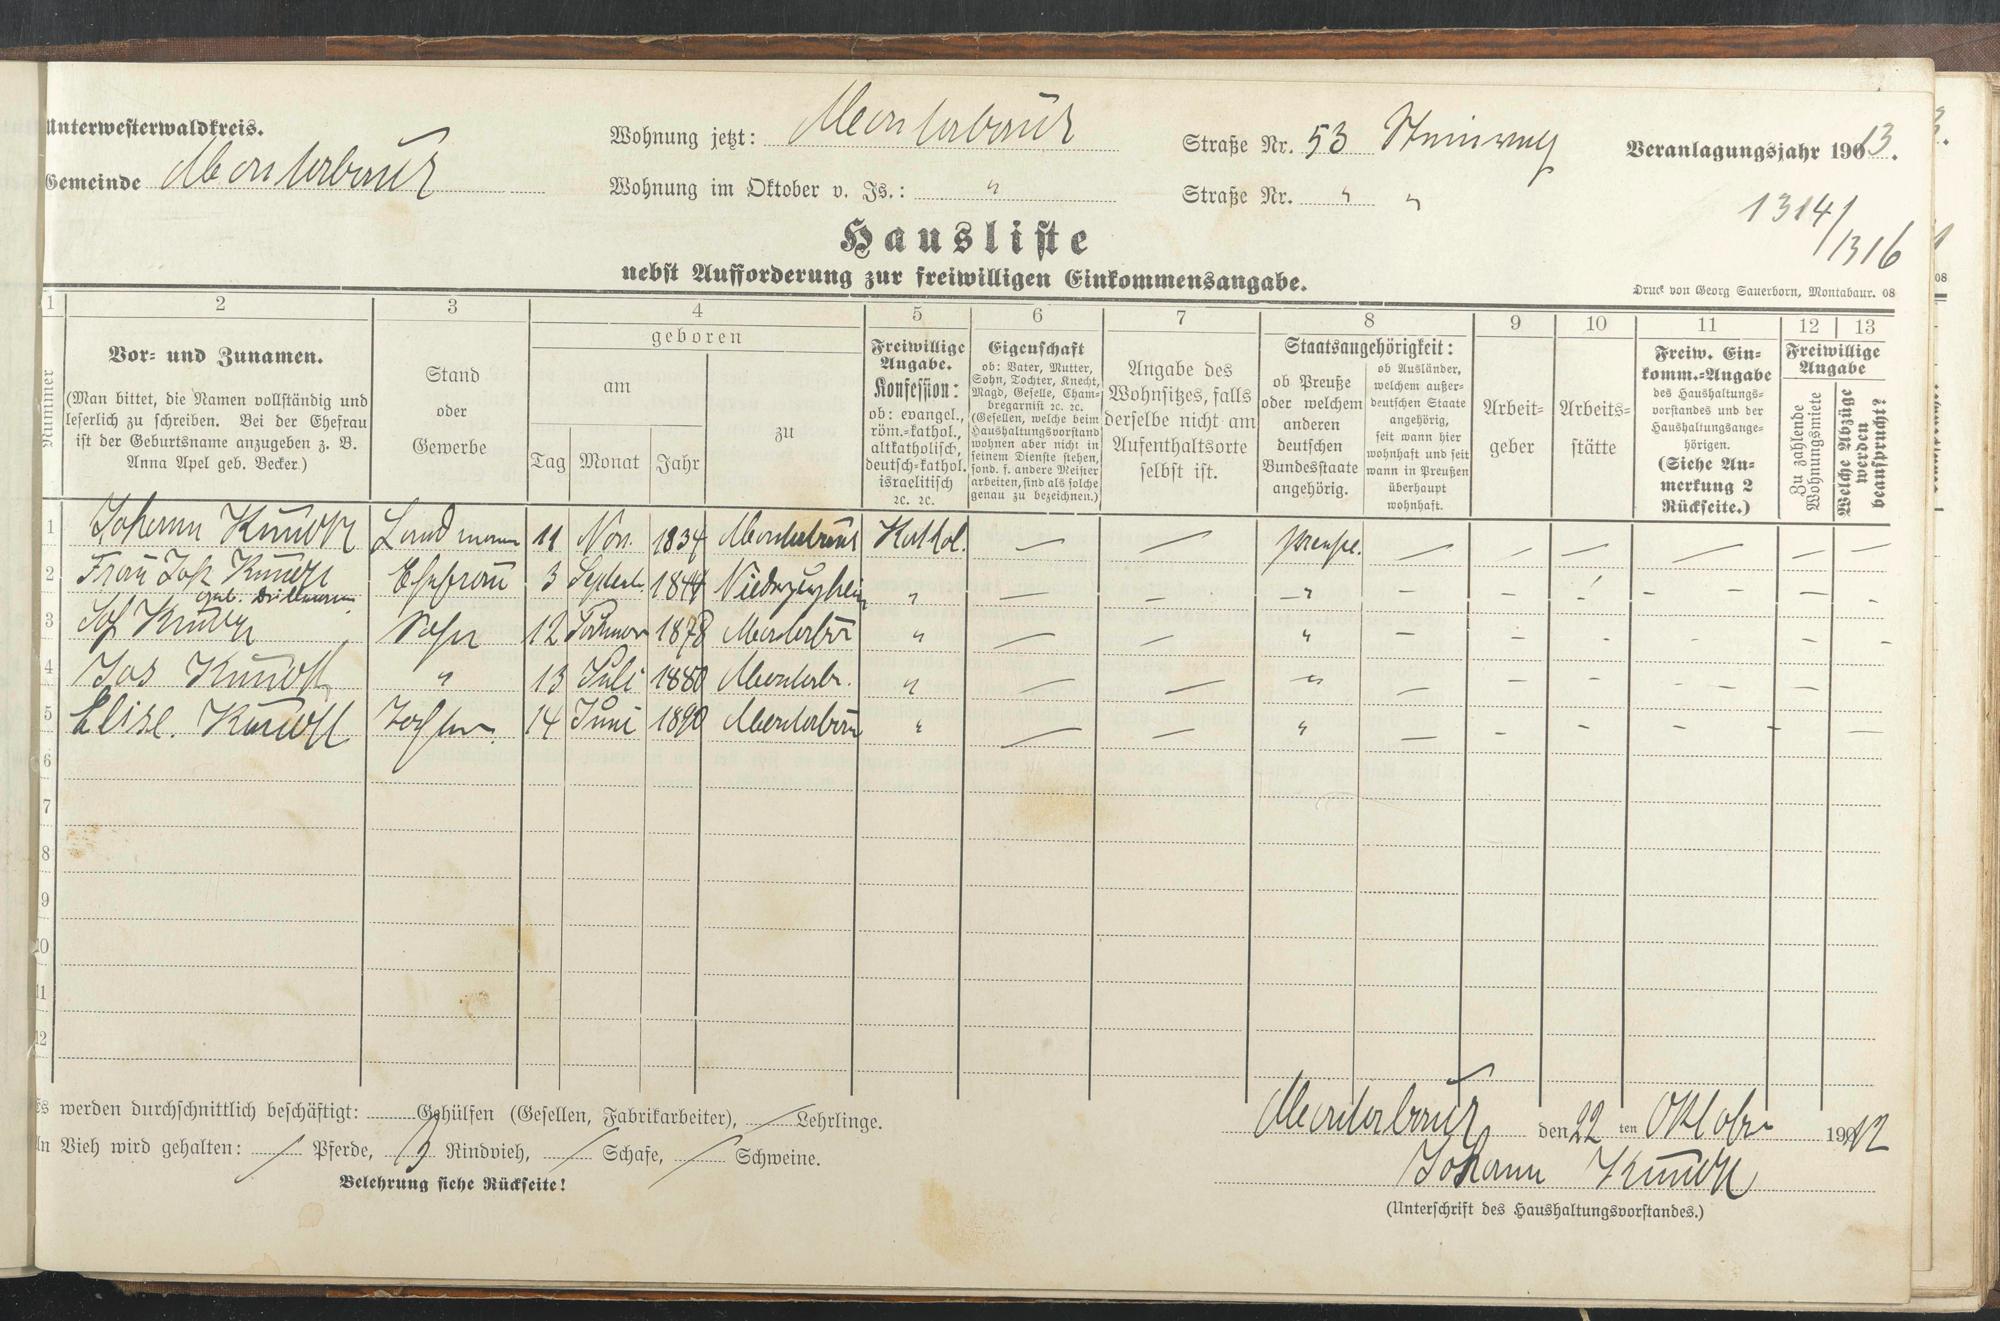 Unterwesterwaldkreis.
Gemeinde Montabaur
Wohnung jetzt: Montabaur Straße Nr. 53 Steinweg
Wohnung im Oktober v. Js.: " Straße Nr. " "
Veranlagungsjahr 19013.
1314/
1316
Hausliste
nebst Aufforderung zur freiwilligen Einkommensangabe.
Druck von Georg Sauerborn, Montabaur. 08
1 2 3 4 5 6 7 8 9 10 11 12 13
Nummer
Vor- und Zunamen.
(Man bittet, die Namen vollständig und
leserlich zu schreiben. Bei der Ehefrau
ist der Geburtsname anzugeben z. B.
Anna Apel geb. Becker.)
Stand
oder
Gewerbe
geboren
am
Tag Monat Jahr
zu
Freiwillige
Angabe.
Konfession:
ob: evangel.,
röm.-kathol.,
altkatholisch,
deutsch-kathol.
israelitisch
ꝛc. ꝛc.
Eigenschaft
ob: Vater, Mutter,
Sohn, Tochter, Knecht,
Magd, Geselle, Cham-
bregarnist ꝛc. ꝛc.
(Gesellen, welche beim
Haushaltungsvorstand
wohnen aber nicht in
seinem Dienste stehen,
sond. f. andere Meister
arbeiten, sind als solche
genau zu bezeichnen.)
Angabe des
Wohnsitzes, falls
derselbe nicht am
Aufenthaltsorte
selbst ist.
Staatsangehörigkeit:
ob Preuße
oder welchem
anderen
deutschen
Bundesstaate
angehörig.
ob Ausländer,
welchem außer-
deutschen Staate
angehörig,
seit wann hier
wohnhaft und seit
wann in Preußen
überhaupt
wohnhaft.
Arbeit-
geber
Arbeits-
stätte
Freiw. Ein-
komm.-Angabe
des Haushaltungs-
vorstandes und der
Haushaltungsange-
hörigen.
(Siehe An-
merkung 2
Rückseite.)
Freiwillige
Angabe
Zu zahlende
Wohnungsmiete
Welche Abzüge
werden
beansprucht?
1 Johann Landmann 11 Nov. 1834 Montabaur Kathol. — — Preuße. — — — — — —
2 Frau Joh Ehefrau 3 Septemb. 1844 " — — " — — — — — —
geb.
3 Sohn 12 1878 Montabaur " — — " — — — — — —
4 Jos " 13 Juli 1880 Montab. " — — " — — — — —
5 Elise. Tochter. 14 Juni 1890 Montabaur " — — " — — — — — —
6
7
8
9
10
11
12
Es werden durchschnittlich beschäftigt: Gehülfen (Gesellen, Fabrikarbeiter), / Lehrlinge.
An Vieh wird gehalten: / Pferde, Rindvieh, / Schafe, / Schweine.
Belehrung siehe Rückseite!
Montabaur den 22 ten Oktober 19012
Johann
(Unterschrift des Haushaltungsvorstandes.)